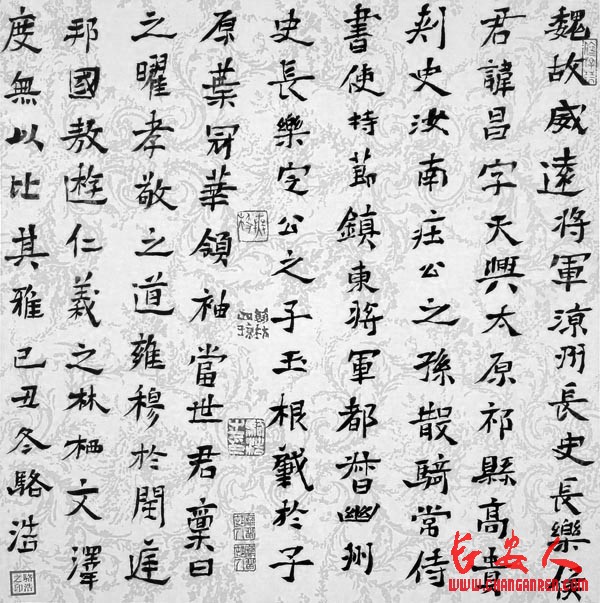 魏故威遠將軍涼州長史長樂侯
君諱昌字天興太原祁縣高貴
刾史汝南莊公之孫散騎常侍
書使持節鎮東將軍都督幽州
史長樂定公之子玉根蕤於子
原葉冠華領袖當世君稟日
之曜孝敬之道雍穆於閨庭
邦國敖遊仁義之林栖文澤
度無以比其雅己丑冬駱浩
駱浩之印
长安人
WWW.CHANGANREN.COM